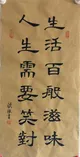 生活百般滋味
人生需要笑對